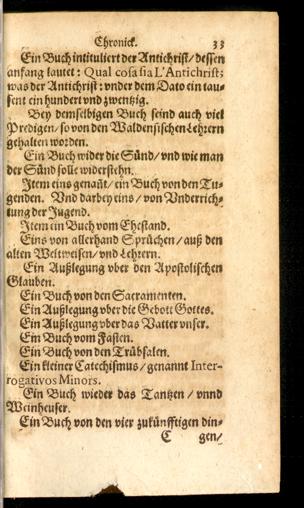 Chronick. 33
Ein Buch intituliert der Antichrist/ dessen
anfang lautet: Qual cosa sia L'Antichrist:
was der Antichrist: vnder dem Dato ein tau-
sent ein hundert vnd zwentzig.
Bey demselbigen Buch seind auch viel
Predigen/ so von den Waldensischen Lehrern
gehalten worden.
Ein Buch wider die Sünd/ vnd wie man
der Sünd solle widerstehn.
Item eins genañt/ ein Buch von den Tu-
genden. Vnd darbey eins/ von Vnderrich-
tung der Jugend.
Item ein Buch vom Ehestand.
Eins von allerhand Sprüchen/ auß den
alten Weltweisen/ vnd Lehrern.
Ein Außlegung vber den Apostolischen
Glauben.
Ein Buch von den Sacramenten.
Ein Außlegung vber die Gebott Gottes.
Ein Außlegung vber das Vatter vnser.
Ein Buch vom Fasten.
Ein Buch von den Trübsalen.
Ein kleiner Catechismus/ genannt Inter-
rogativos Minors.
Ein Buch wieder das Tantzen/ vnnd
Weinheuser.
Ein Buch von den vier zukünfftigen din-
C gen/